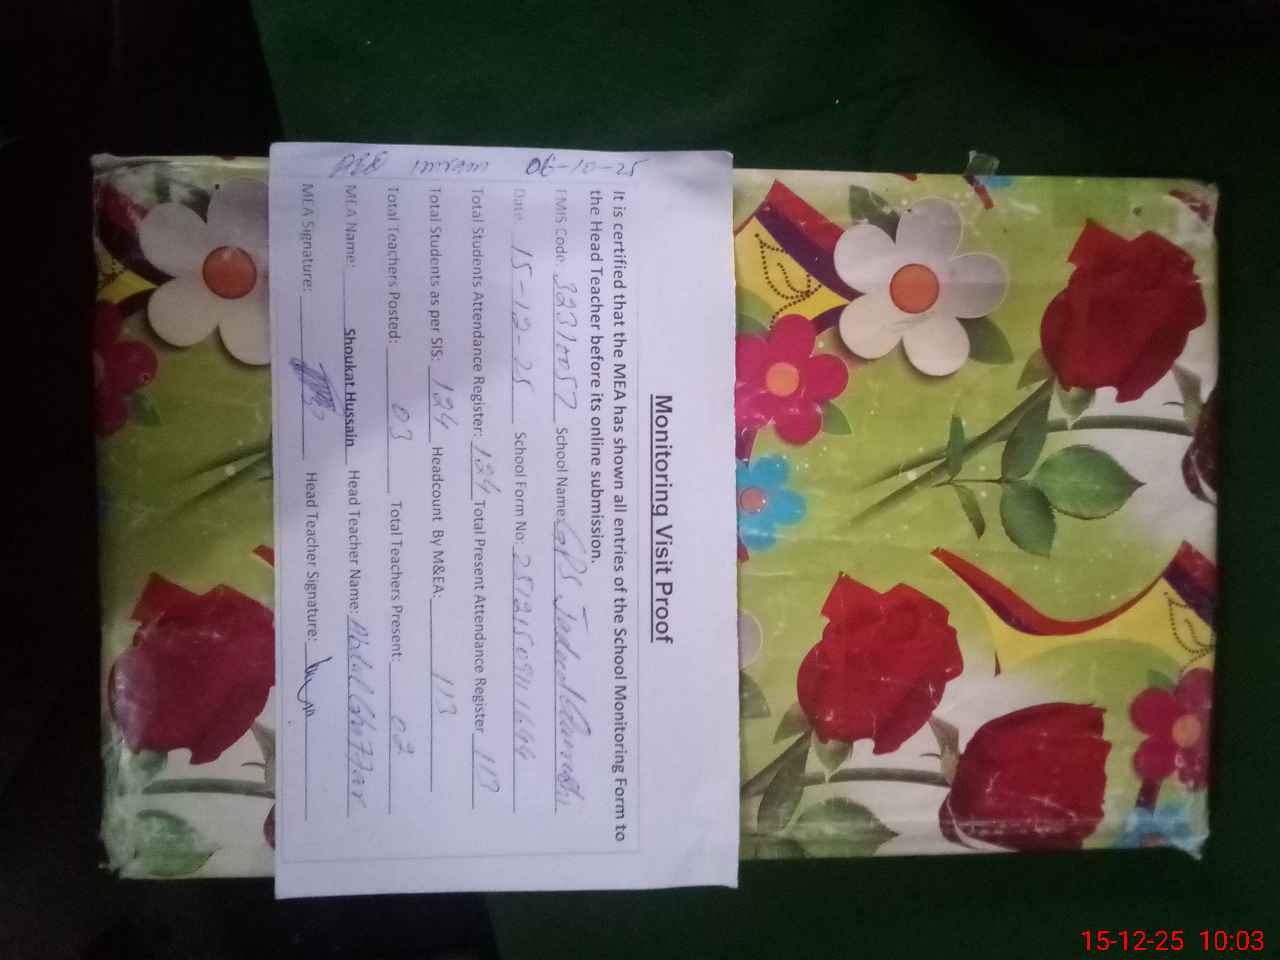 Monitoring Visit Proof
It is certified that the MEA has shown all entries of the School Monitoring Form to
the Head Teacher before its online submission.
EMIS Code: 32310057 School Name: GPS
Date: 15-12-25 School Form No: 25121509111644
Total Students Attendance Register: 124 Total Present Attendance Register 113
Total Students as per SIS: 124 Headcount By M&EA: 113
Total Teachers Posted: 03 Total Teachers Present: 02
MEA Name: Shoukat Hussain Head Teacher Name: Abdul Ghaffar
MEA Signature: Head Teacher Signature:
06-10-25
imram
15-12-25 10:03